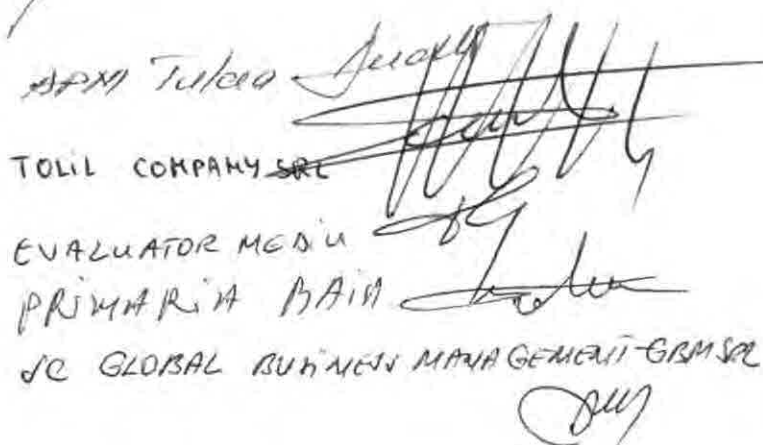 APM Tulcea
TOLIL COMPANY SRL
EVALUATOR MEDIU
PRIMARIA BAIA
SC GLOBAL BUSINESS MANAGEMENT-GBM SRL